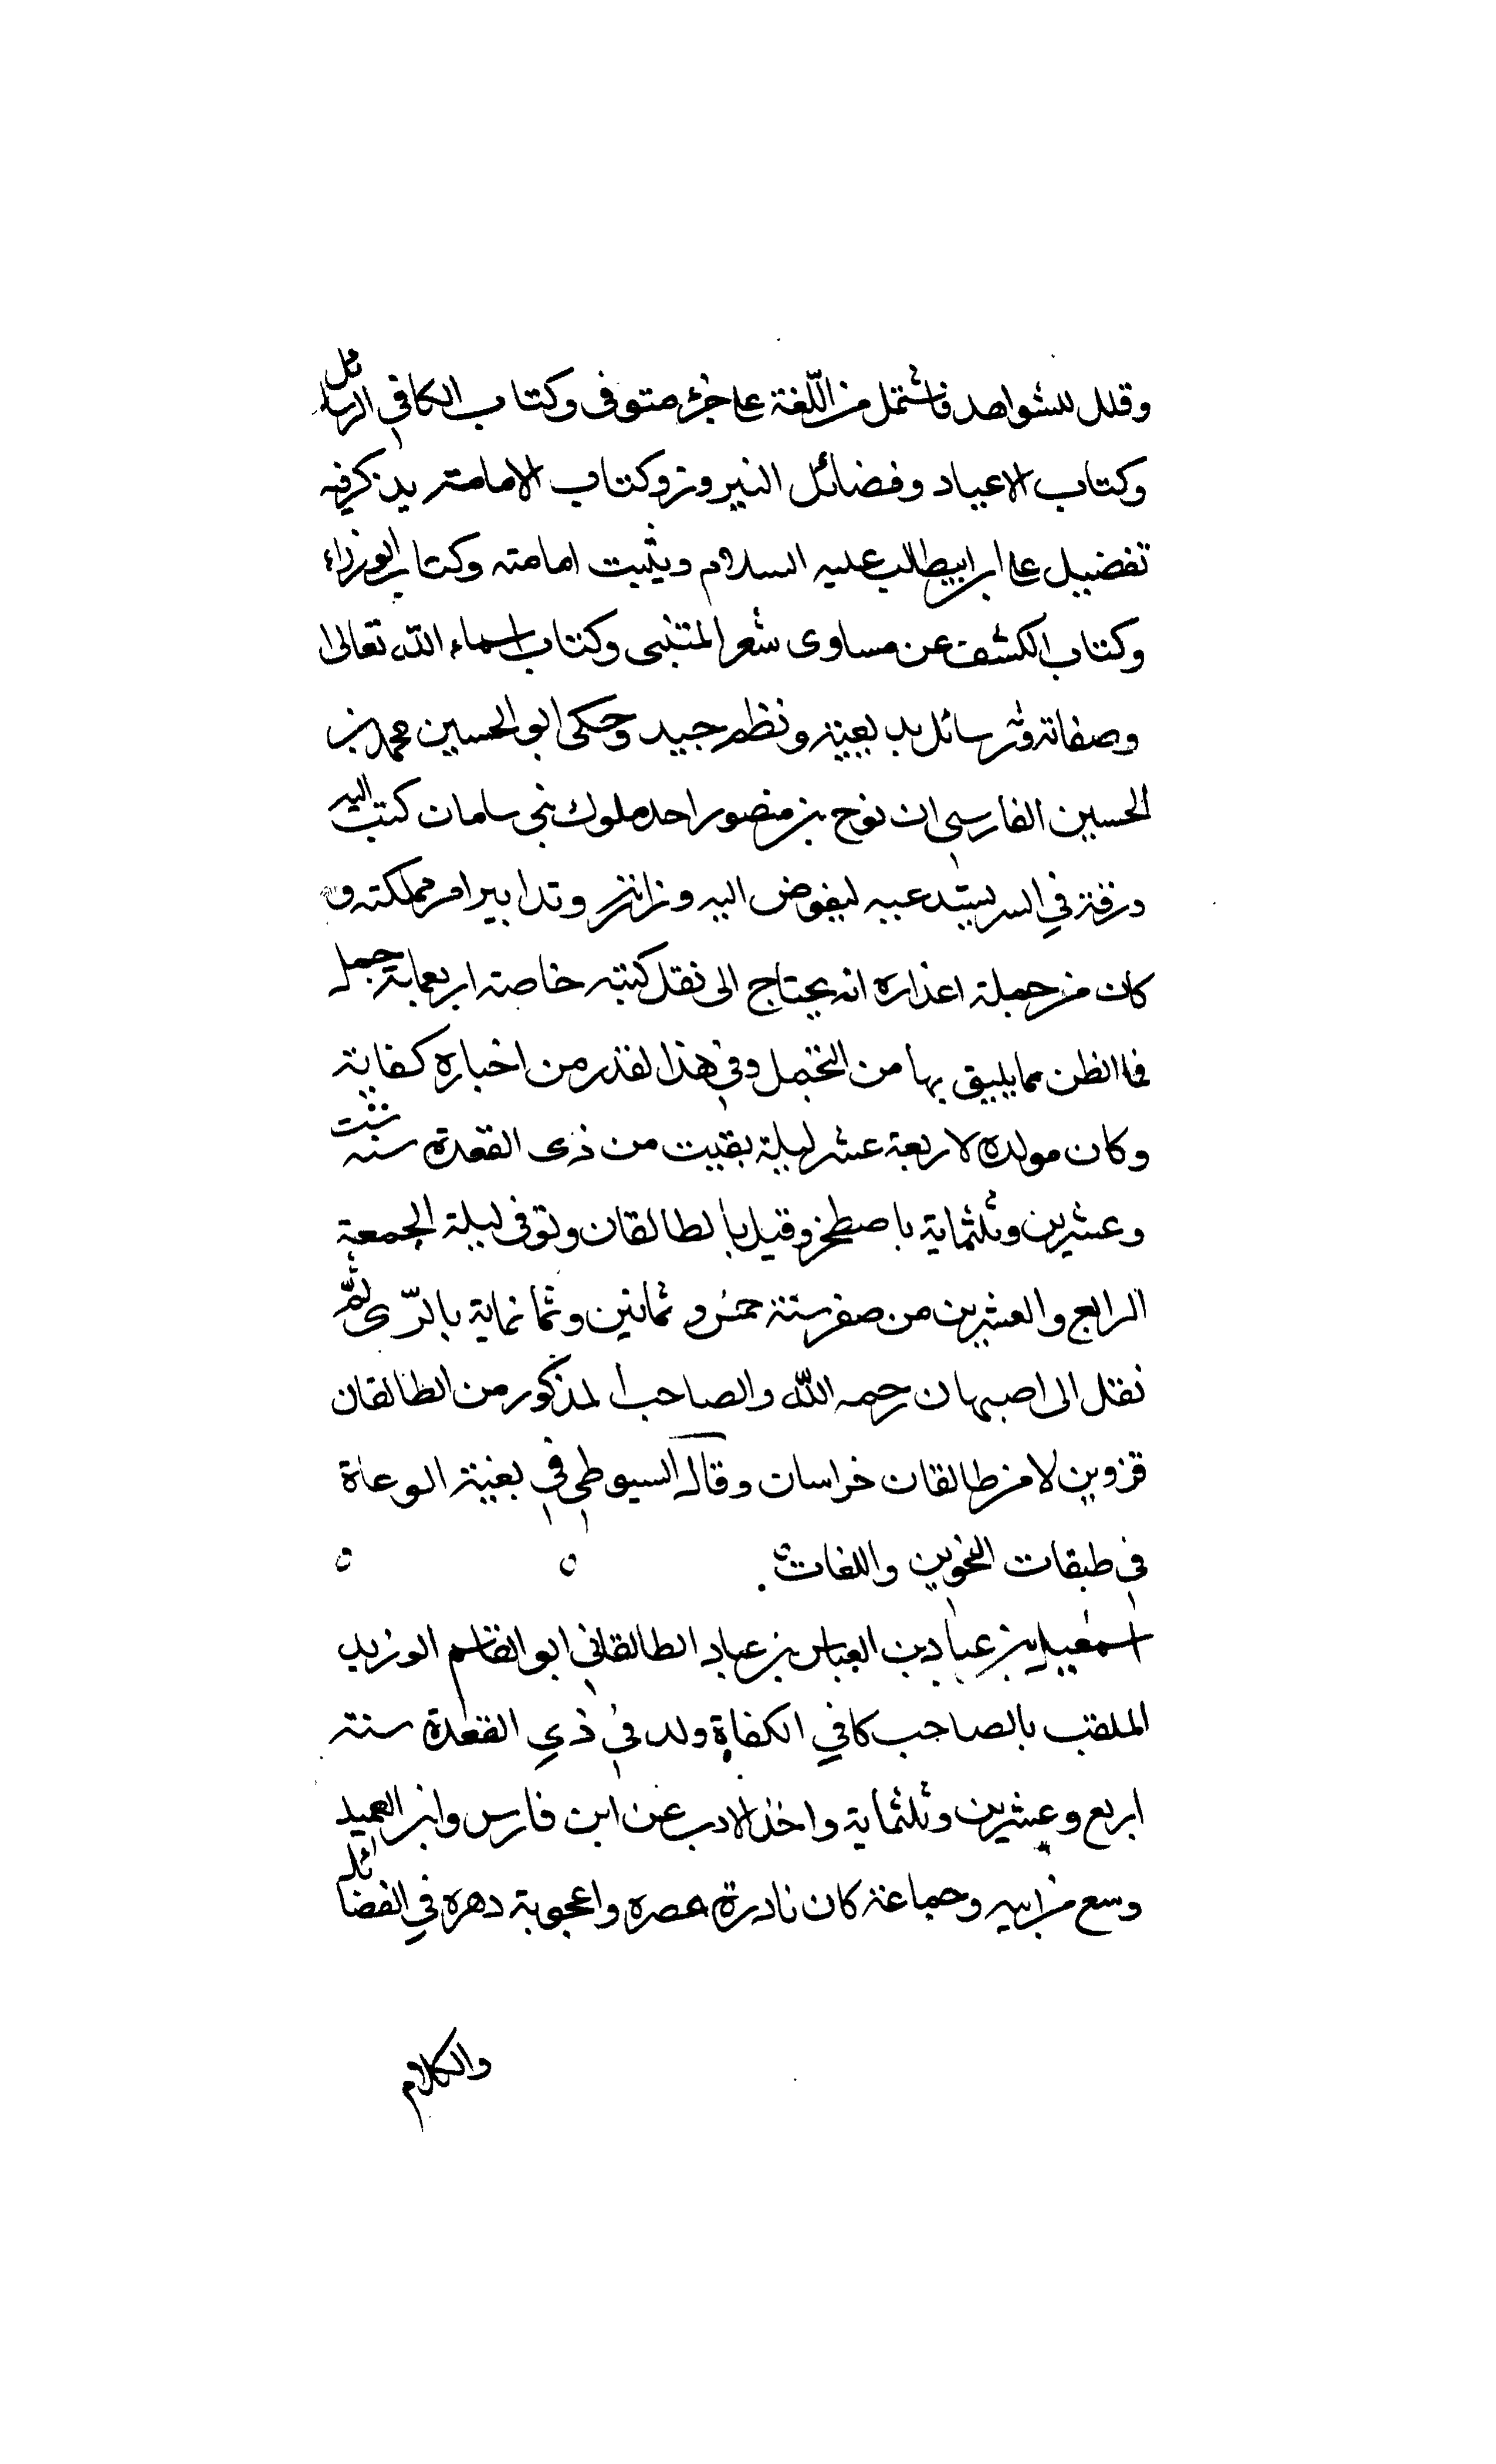 وقلل للشواهد فاشتمل من اللّغة على جزء متوفى وكتاب الكافي الرسائل
وكتاب الاعياد وفضائل النيروز وكتاب الامامة يذكر فيه
تفضيل على ابن ابيطالب عليه السلام ويثبت امامته وكتاب الوزراء
وكتاب الكشف عن مساوى شعر المتنبى وكتاب اسماء الله تعالى
وصفاته وثر رسائل بديعية ونظم جيد وحكى ابو الحسين محمد بن
الحسين الفارسي ان نوح بن منصور احد ملوك بني سامان كتب اليه
ورقة في السر يستدعيه ليفوض اليه وزارته وتدابير امر مملكته و
كان من جملة اعذاره انه يحتاج الى نقل كتبه خاصة اربعماية جمل
فما الظن مما يليق بها من التجمل وفي هذا لقدر من اخباره كفاية
وكان مولده لاربعة عشر ليلة بقيت من ذى القعدة سنه ست
وعشرين وثلثماية باصطخر وقيل بالطالقان وتوفى ليلة الجمعة
الرابع والعشرين من صفر سنة خمس و ثمانين وثمانماية بالرّى ثم
نقل الى اصبهان رحمه الله والصاحب المذكور من الطالقان
قزوين لا من طالقان خراسان وقال السيوطي في بغية الوعاة
في طبقات النحوين واللغات
اسمعيل بن عباد بن العباس بن عباد الطالقاني ابو القاسم الوزير
الملقب بالصاحب كافي الكفاة ولد في ذي القعدة سنة
اربع وعشرين وثلثماية واخذ الادب عن ابن فارس وابن العميد
وسمع من ابيه وجماعة كان نادرة عصره واعجوبة دهره في الفضائل
والكلام